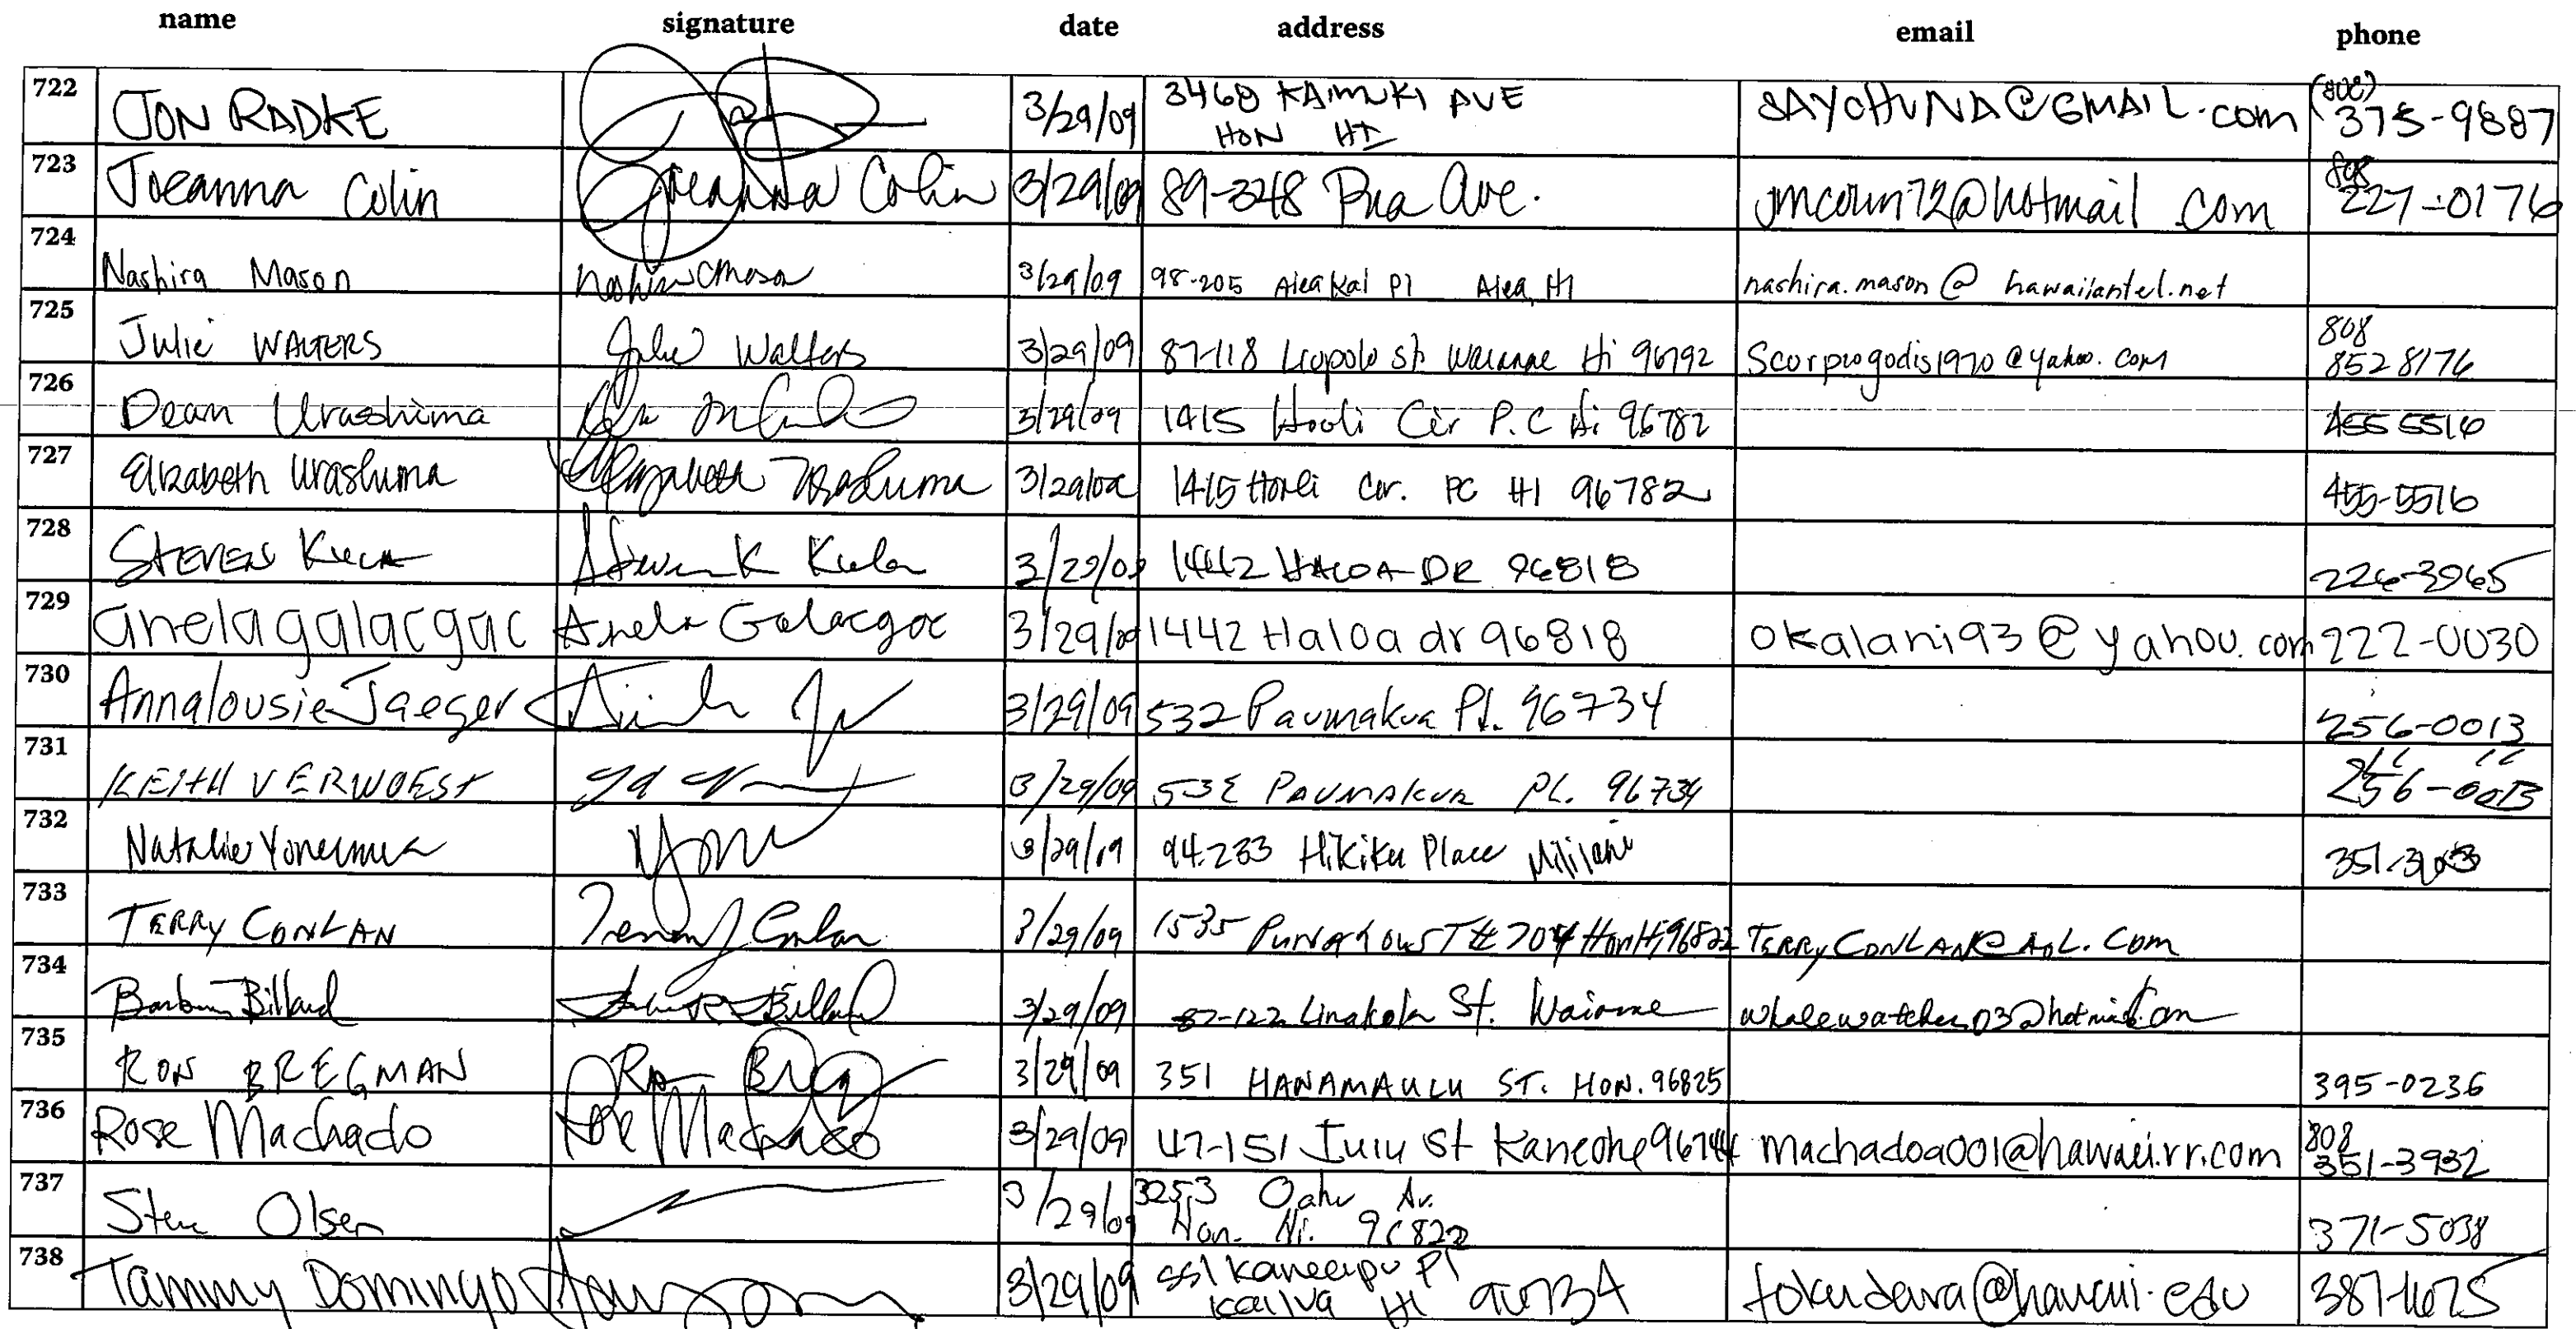 name signature date address email phone
722 JON RADKE 3/29/09 3468 KAIMUKI AVE HON HI SAYCHUNA@GMAIL.com (808) 375-9887
723 Joeanna Colin Joeanna Colin 3/29/09 89-348 Pua Ave. jmcolin72@hotmail.com 808 227-0176
724 Nashira Mason 3/29/09 98-205 Aiea Kai Pl Aiea, HI nashira.mason@hawaiiantel.net
725 Julie WALTERS Julie Walters 3/29/09 87-118 St. Waianae Hi 96792 Scorpiogodis1970@yahoo.com 808 852 8176
726 Dean Urashima 3/29/09 1415 Hooli Cir P.C Hi 96782 455 5516
727 Elizabeth Urashima Elizabeth Urashima 3/29/09 1415 Hooli Cir. PC HI 96782 455-5516
728 STEVEN Steven K 3/29/09 1442 HALOA DR 96818 226-3965
729 anela galacgac Anela Galacgac 3/29/09 1442 Haloa dr 96818 okalani93@yahoo.com 222-0030
730 Annalousie Jaeger 3/29/09 532 Paumakua Pl. 96734 256-0013
731 KEITH VERWOEST 3/29/09 532 PAUMAKUA PL. 96734 256-0013
732 Natalie Yonemura 3/29/09 94-233 Hikiku Place Mililani
733 TERRY CONLAN Terry Conlan 3/29/09 1535 Punahou ST # 704 Hon Hi 96822 TERRYCONLAN@AOL.Com
734 Barbara Billand 3/29/09 87-122 St. Waianae whalewatcher03@hotmail.com
735 RON BREGMAN 3/29/09 351 HANAMAULU ST. HON. 96825 395-0236
736 Rose Machado Rose Machado 3/29/09 47-151 Iuiu St Kaneohe 96744 machadoa001@hawaii.rr.com 808 351-3932
737 Steve Olsen 3/29/09 3253 Oahu Av. Hon. Hi. 96822 371-5038
738 Tammy Domingo 3/29/09 551 Kaneapu Pl Kailua HI 96734 fokudawa@hawaii.edu 387-1675